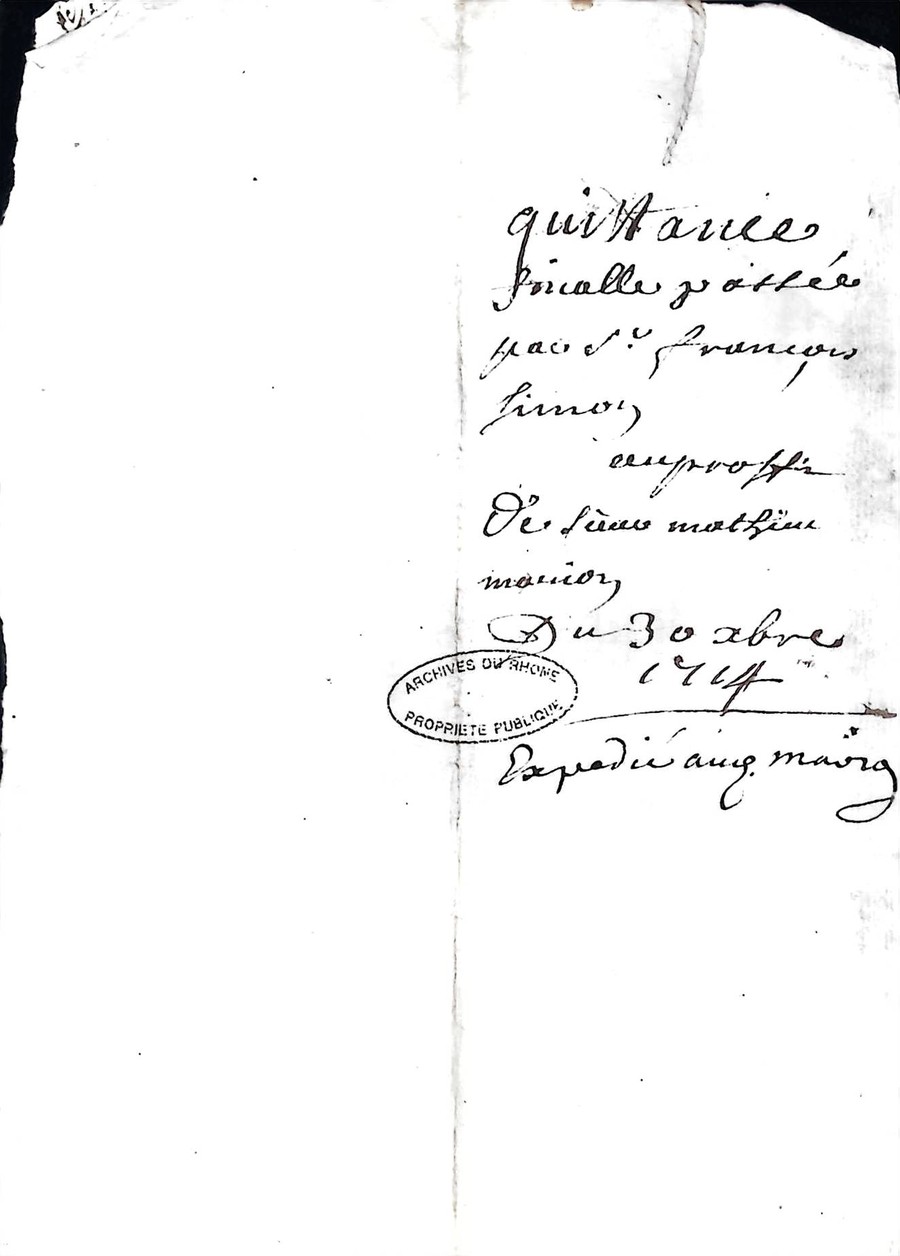 quittance
finalle passée
par Sr. françois
Simon
auproffit
De Sieur mathieu
Du 30 xbre
1714
ARCHIVES DU RHONE
PROPRIETE PUBLIQUE
Expedié